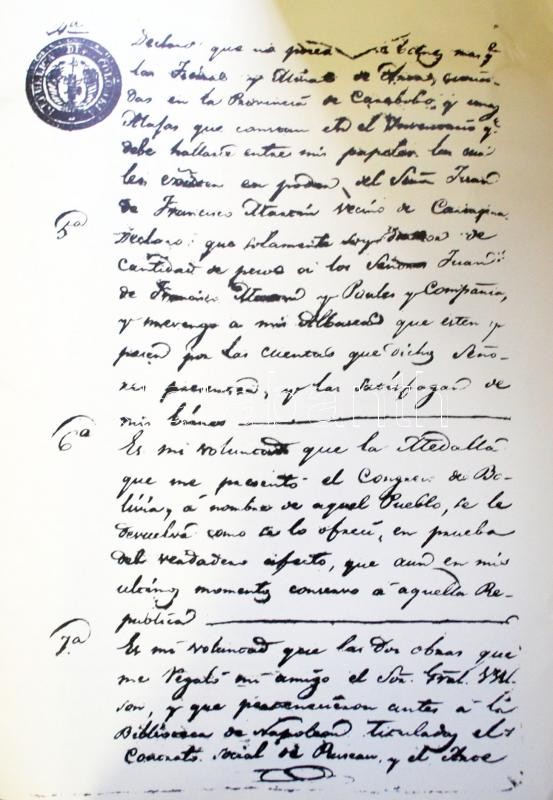 4a
Declaro: que no poseo otros bienes mas q.e
las Tierras y Minas de Aroa, situa-
das en la Provincia de Carabobo, y unas
Alajas que constan en el Inventario q.e
debe hallarse entre mis papeles las cua-
les existen en poder del Señor Juan
de Francisco Martin vecino de Cartagena.
5a
Declaro: que solamente soy deudor de
cantidad de pesos a los Señores Juan
de Francisco Martin y Powles y Compañia,
y prevengo a mis Albaceas que esten y
pasen por las cuentas que dichos Seño-
res presenten, y las satisfagan de
mis bienes
6a
Es mi voluntad que la Medalla
que me presentó el Congreso de Bo-
livia, á nombre de aquel Pueblo, se le
devuelva como se lo ofreci, en prueba
del verdadero afecto, que aun en mis
ultimos momentos conservo á aquella Re-
publica
7a
Es mi voluntad que las dos obras que
me regaló mi amigo el Sor. Gral. Wil-
son, y que pertenecieron antes á la
Biblioteca de Napoleon tituladas el
Contrato Social de Ruseau, y el Arte